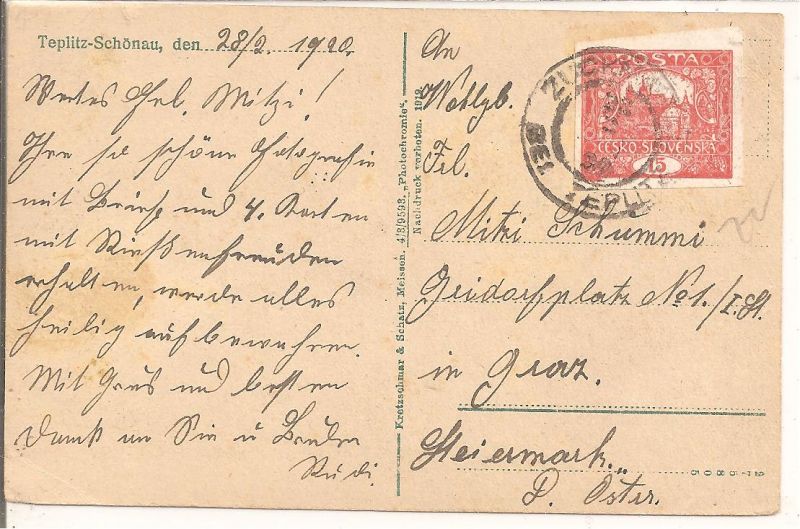 Teplitz-Schönau, den 28/2. 1920.
Wertes Frl. Mitzi!
Ihre so schöne Fotografie
mit Brief und 4. Karten
mit Rießenfreuden
erhalten, werde alles
heilig aufbewahren.
Mit Grus und besten
Dank an Sie u Bruder
Rudi.
Kretzschmar & Schatz, Meissen. 4/3/9593. „Photochromie“.
Nachdruck verboten. 1919
An
Wohlgb.
Frl.
Mitzi Schummi
Geidorfplatz No 1./I. St.
in Graz.
Steiermark.
D. Östr.
POSTA
ČESKO-SLOVENSKÁ
15
BEI TEPLITZ